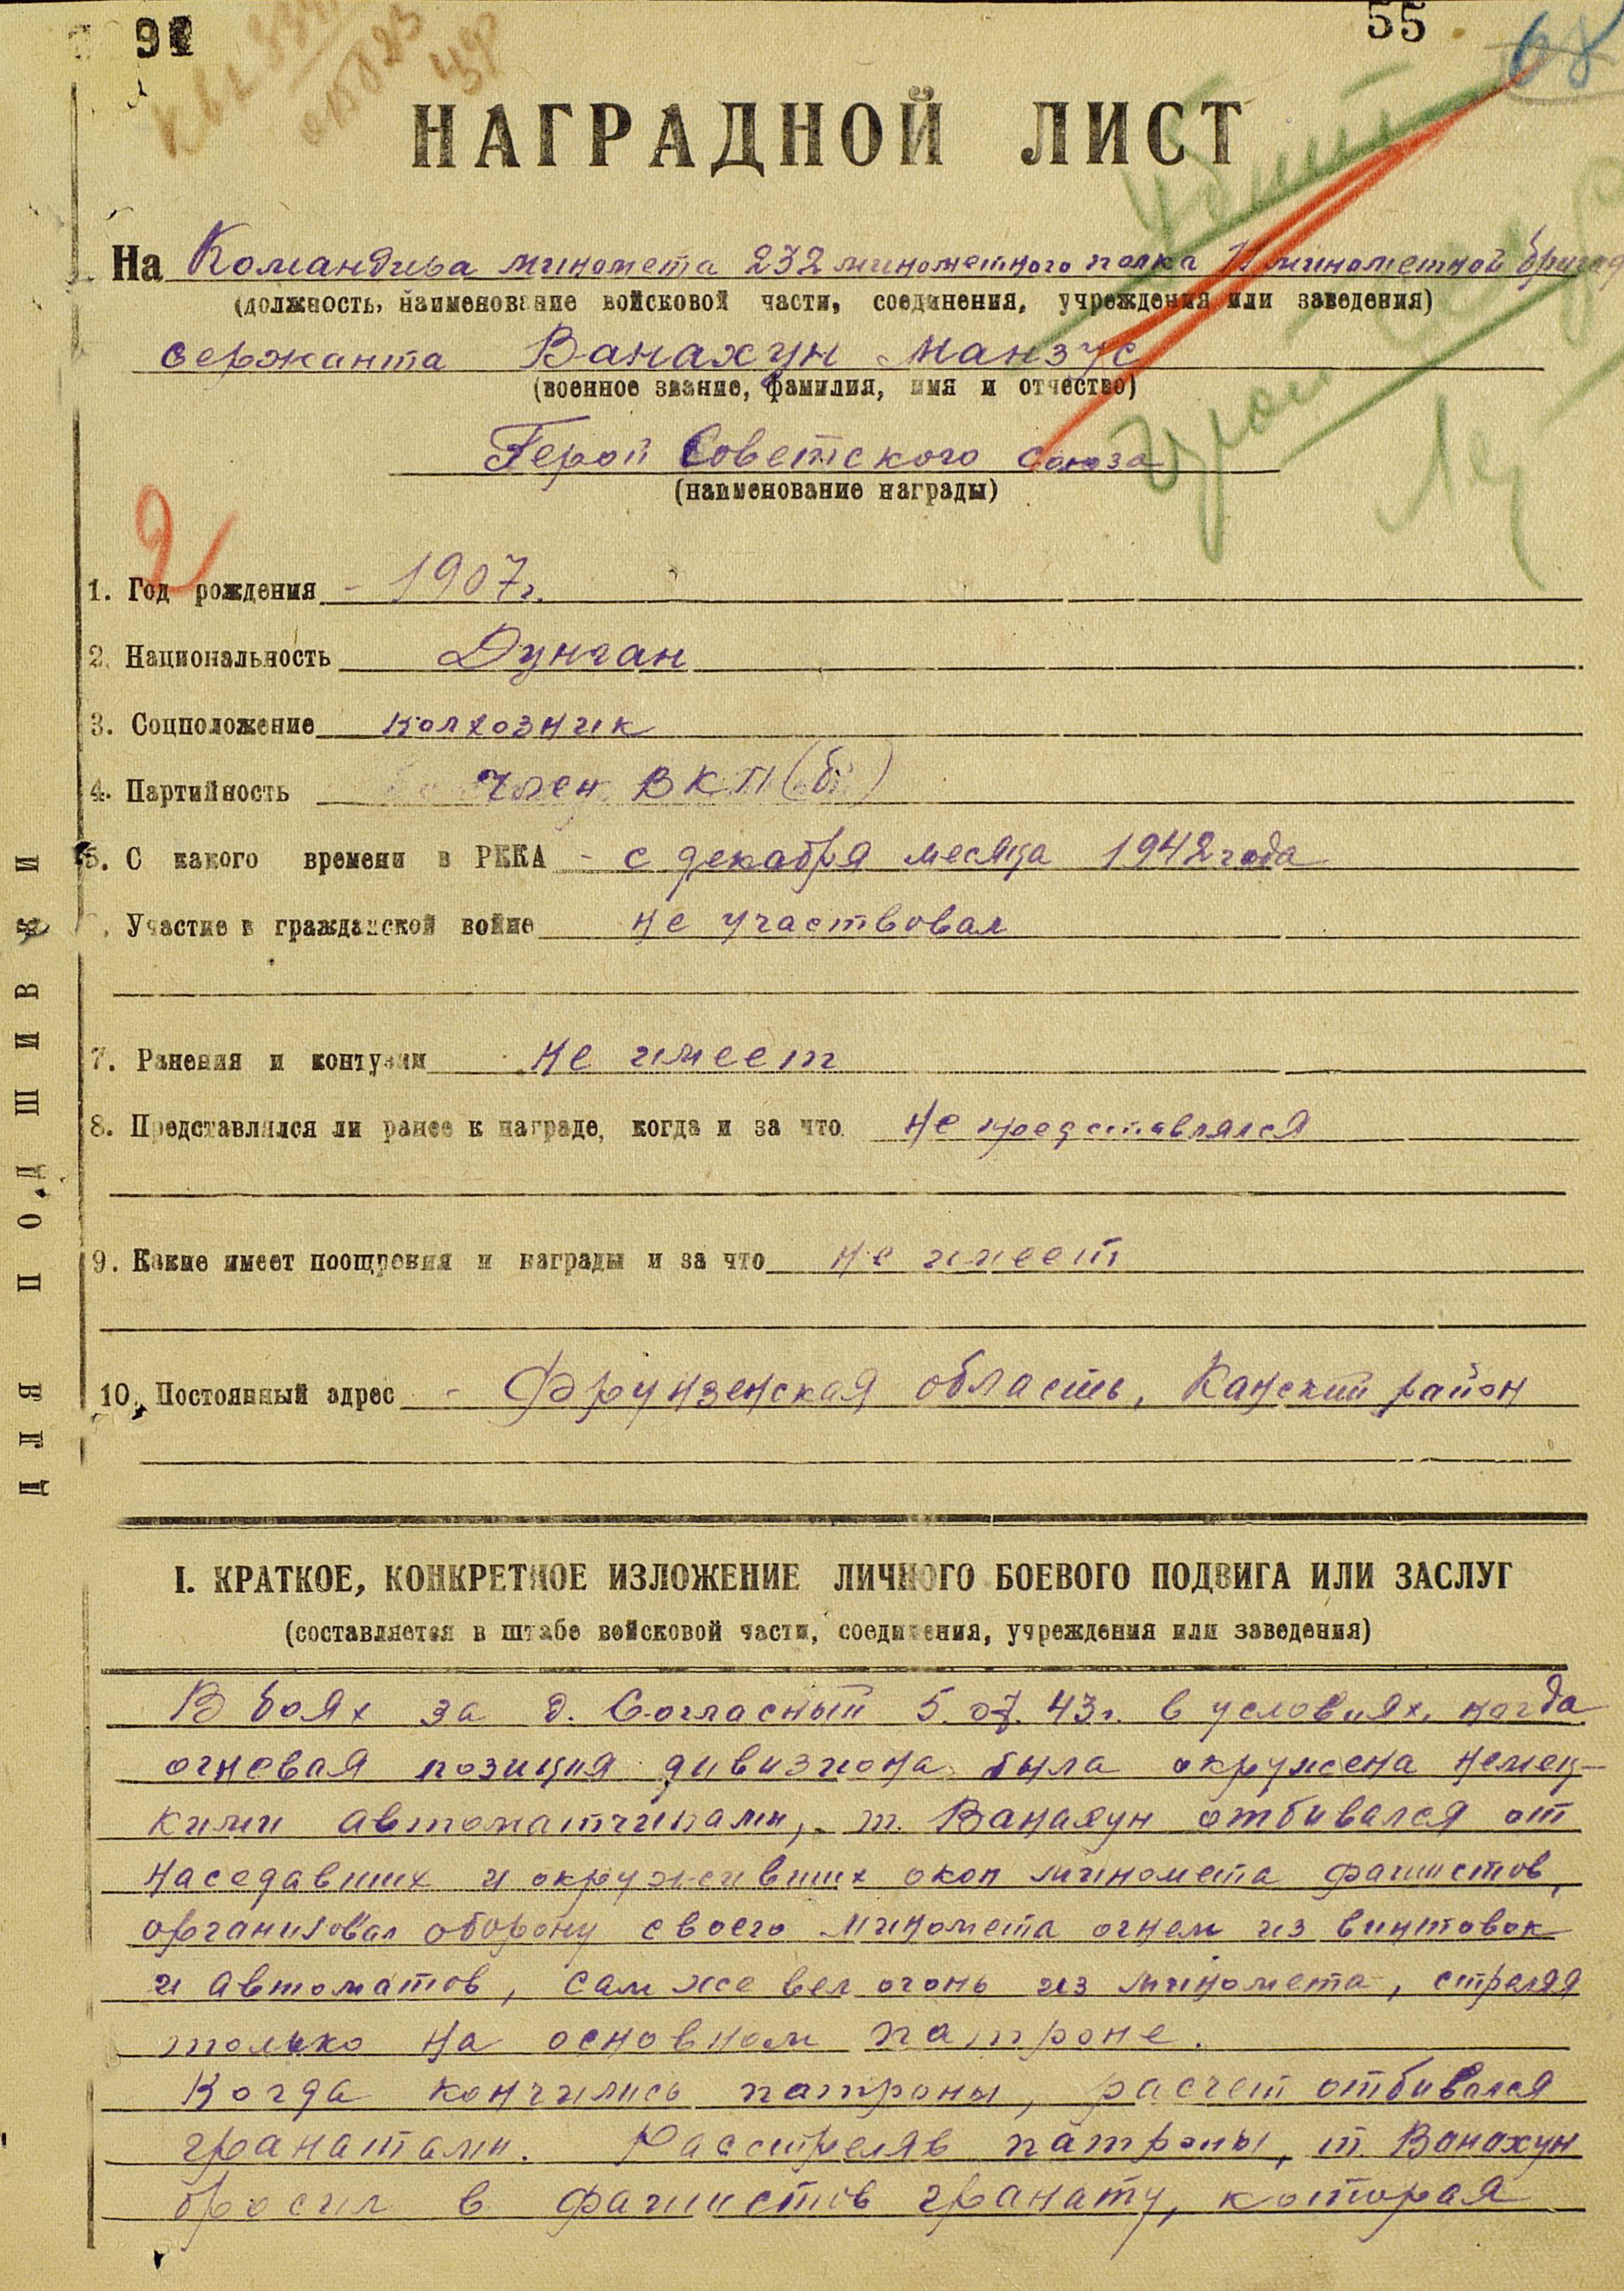 92
55
68
НАГРАДНОЙ ЛИСТ
На Командира миномета 232 минометного полка 11 минометной бригад
(должность, наименование войсковой части, соединения, учреждения или заведения)
сержанта Ванахун Манзус
(военное звание, фамилия, имя и отчество)
Герой Советского Союза
(наименование награды)
2
1. Год рождения - 1907 г.
2. Национальность Дунган
3. Соцположение колхозник
4. Партийность Член ВКП(б)
5. С какого времени в РККА - с декабря месяца 1942 года
Участие в гражданской войне не участвовал
7. Ранения и контузии не имеет
8. Представлялся ли ранее к награде, когда и за что не представлялся
9. Какие имеет поощрения и награды и за что не имеет
10. Постоянный адрес - Фрунзенская область, Канский район
ДЛЯ ПОДШИВКИ
I. КРАТКОЕ, КОНКРЕТНОЕ ИЗЛОЖЕНИЕ ЛИЧНОГО БОЕВОГО ПОДВИГА ИЛИ ЗАСЛУГ
(составляется в штабе войсковой части, соединения, учреждения или заведения)
В боях за д. Согласный 5.07.43г. в условиях, когда
огневая позиция дивизиона была окружена немец-
кими автоматчиками, т. Ванахун отбивался от
наседавших и окруживших окоп миномета фашистов,
организовал оборону своего миномета огнем из винтовок
и автоматов, сам же вел огонь из миномета, стреляя
только на основном патроне.
Когда кончились патроны, расчет отбивался
гранатами. Расстреляв патроны, т. Ванахун
бросил в фашистов гранату, которая